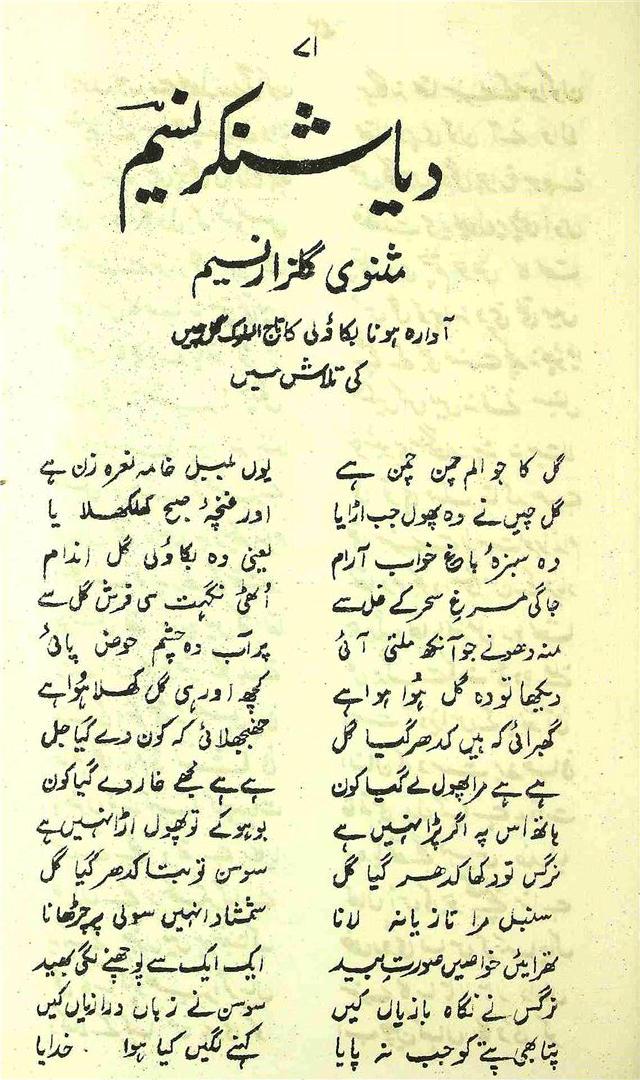 ۷۱
دیا شنکر نسیم
مثنوی گلزار نسیم
آوارہ ہونا بکاؤلی کا تاج الملوک گلچیں
کی تلاش میں
گل کا جو الم چمن چمن ہے یوں بلبل خامہ نعرہ زن ہے
گل چیں نے وہ پھول جب اڑایا اور غنچۂ صبح کھلکھلا یا
وہ سبزۂ باغ خواب آرام یعنی وہ بکاؤلی گل اندام
جاگی مرغ سحر کے غل سے اُٹھی نکہت سی فرش گل سے
منہ دھونے جو آنکھ ملتی آئی پر آب وہ چشم حوض پائی
دیکھا تو وہ گل ہُوا ہوا ہے کچھ اور ہی گل کھلا ہُوا ہے
گھبرائی کہ ہیں کدھر گیا گل جھنجھلائی کہ کون دے گیا جل
ہے ہے مرا پھول لے گیا کون ہے ہے مجھے خار دے گیا کون
ہاتھ اس پہ اگر پڑا نہیں ہے بو ہو کے تو پھول اڑا نہیں ہے
نرگس تو دکھا کدھر گیا گل سوسن تو بتا کدھر گیا گل
سنبل مرا تازیانہ لانا شمشاد انہیں سولی پر چڑھانا
تھرائیں خواصیں صورت بید ایک ایک سے پوچھنے لگی بھید
نرگس نے نگاہ بازیاں کیں سوسن نے زباں درازیاں کیں
پتا بھی پتے کو جب نہ پایا کہنے لگیں کیا ہوا خدایا